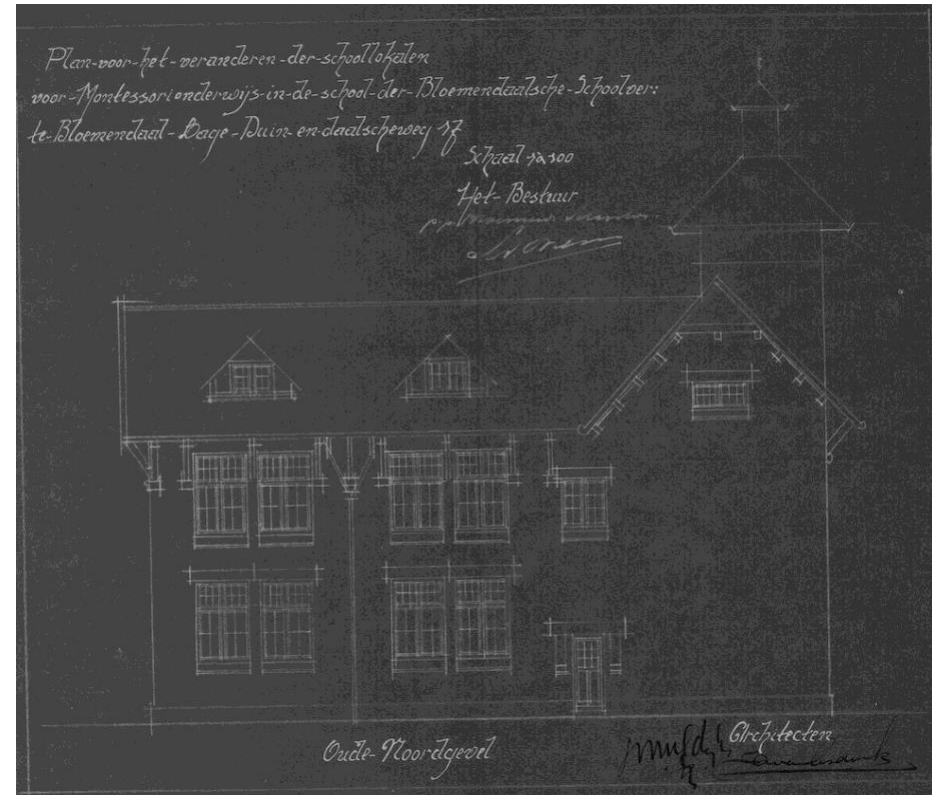 Plan-voor-het-veranderen-der-schoollokalen
voor-Montessorionderwijs-in-de-school-der-Bloemendaalsche-Schoolver:
te-Bloemendaal-Lage-Duin-en-daalscheweg 17
Schaal 1à100
Het-Bestuur
Oude-Noordgevel
Architecten